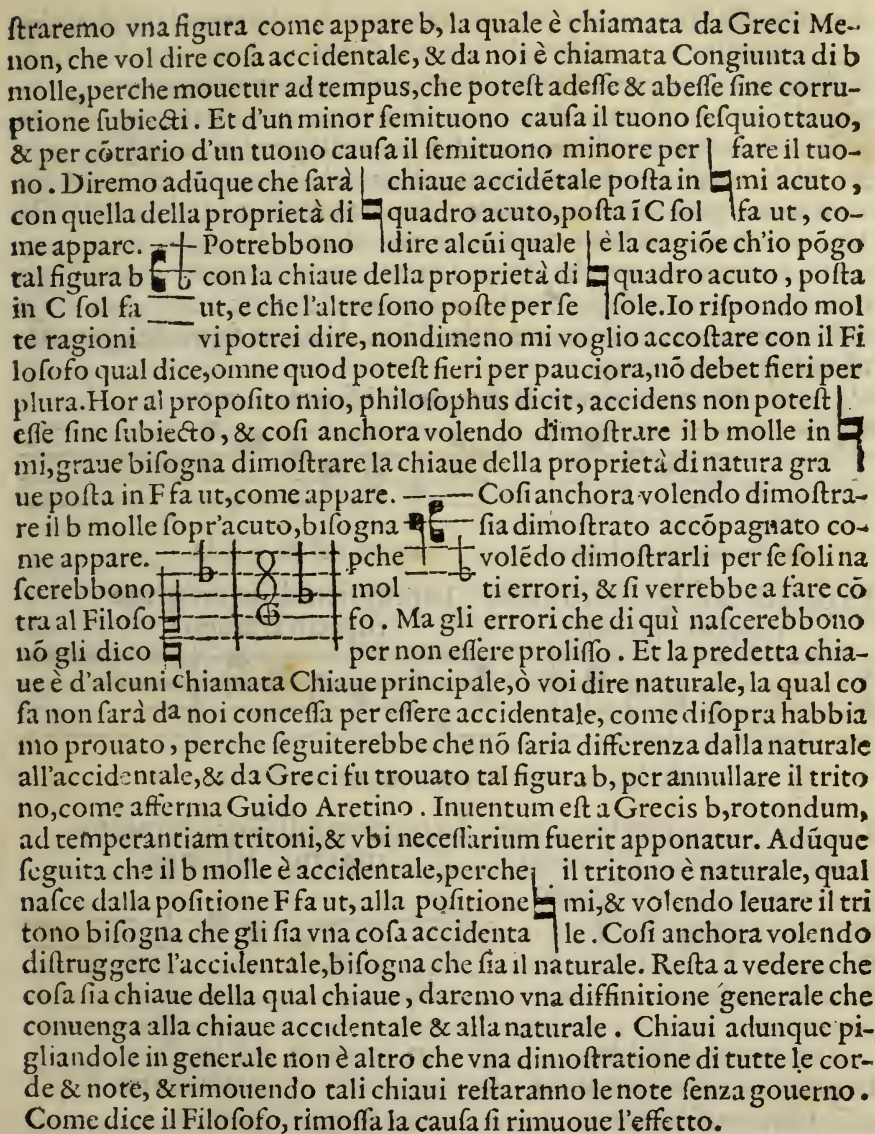 ſtraremo vna figura come appare b, la quale è chiamata da Greci Me-
non, che vol dire coſa accidentale, & da noi è chiamata Congiunta di b
molle, perche mouetur ad tempus, che poteſt adeſſe & abeſſe ſine corru-
ptione ſubiecti. Et d'un minor ſemituono cauſa il tuono ſeſquiottauo,
& per cōtrario d'un tuono cauſa il ſemituono minore per fare il tuo-
no. Diremo adūque che ſarà chiaue accidētale poſta in ♮ mi acuto,
con quella della proprietà di ♮ quadro acuto, poſta ī C ſol fa ut, co-
me appare. Potrebbono dire alcūi quale è la cagiōe ch'io pōgo
tal figura b con la chiaue della proprietà di ♮ quadro acuto, poſta
in C ſol fa ut, e che l'altre ſono poſte per ſe ſole. Io riſpondo mol
te ragioni vi potrei dire, nondimeno mi voglio accoſtare con il Fi
loſofo qual dice, omne quod poteſt fieri per pauciora, nō debet fieri per
plura. Hor al propoſito mio, philoſophus dicit, accidens non poteſt
eſſe ſine ſubiecto, & coſi anchora volendo dimoſtrare il b molle in ♮
mi, graue biſogna dimoſtrare la chiaue della proprietà di natura gra
ue poſta in F fa ut, come appare. Coſi anchora volendo dimoſtra-
re il b molle ſopr'acuto, biſogna ſia dimoſtrato accōpagnato co-
me appare. pche volēdo dimoſtrarli per ſe ſoli na
ſcerebbono mol ti errori, & ſi verrebbe a fare cō
tra al Filoſo fo. Ma gli errori che di quì naſcerebbono
nō gli dico per non eſſere proliſſo. Et la predetta chia-
ue è d'alcuni chiamata Chiaue principale, ò voi dire naturale, la qual co
ſa non ſarà da noi conceſſa per eſſere accidentale, come diſopra habbia
mo prouato, perche ſeguiterebbe che nō ſaria differenza dalla naturale
all'accidentale, & da Greci fu trouato tal figura b, per annullare il trito
no, come afferma Guido Aretino. Inuentum eſt a Grecis b, rotondum,
ad temperantiam tritoni, & vbi neceſſarium fuerit apponatur. Adūque
ſeguita che il b molle è accidentale, perche il tritono è naturale, qual
naſce dalla poſitione F fa ut, alla poſitione ♮ mi, & volendo leuare il tri
tono biſogna che gli ſia vna coſa accidenta le. Coſi anchora volendo
diſtruggere l'accidentale, biſogna che ſia il naturale. Reſta a vedere che
coſa ſia chiaue della qual chiaue, daremo vna diffinitione generale che
conuenga alla chiaue accidentale & alla naturale. Chiaui adunque pi-
gliandole in generale non è altro che vna dimoſtratione di tutte le cor-
de & note, & rimouendo tali chiaui reſtaranno le note ſenza gouerno.
Come dice il Filoſofo, rimoſſa la cauſa ſi rimuoue l'effetto.